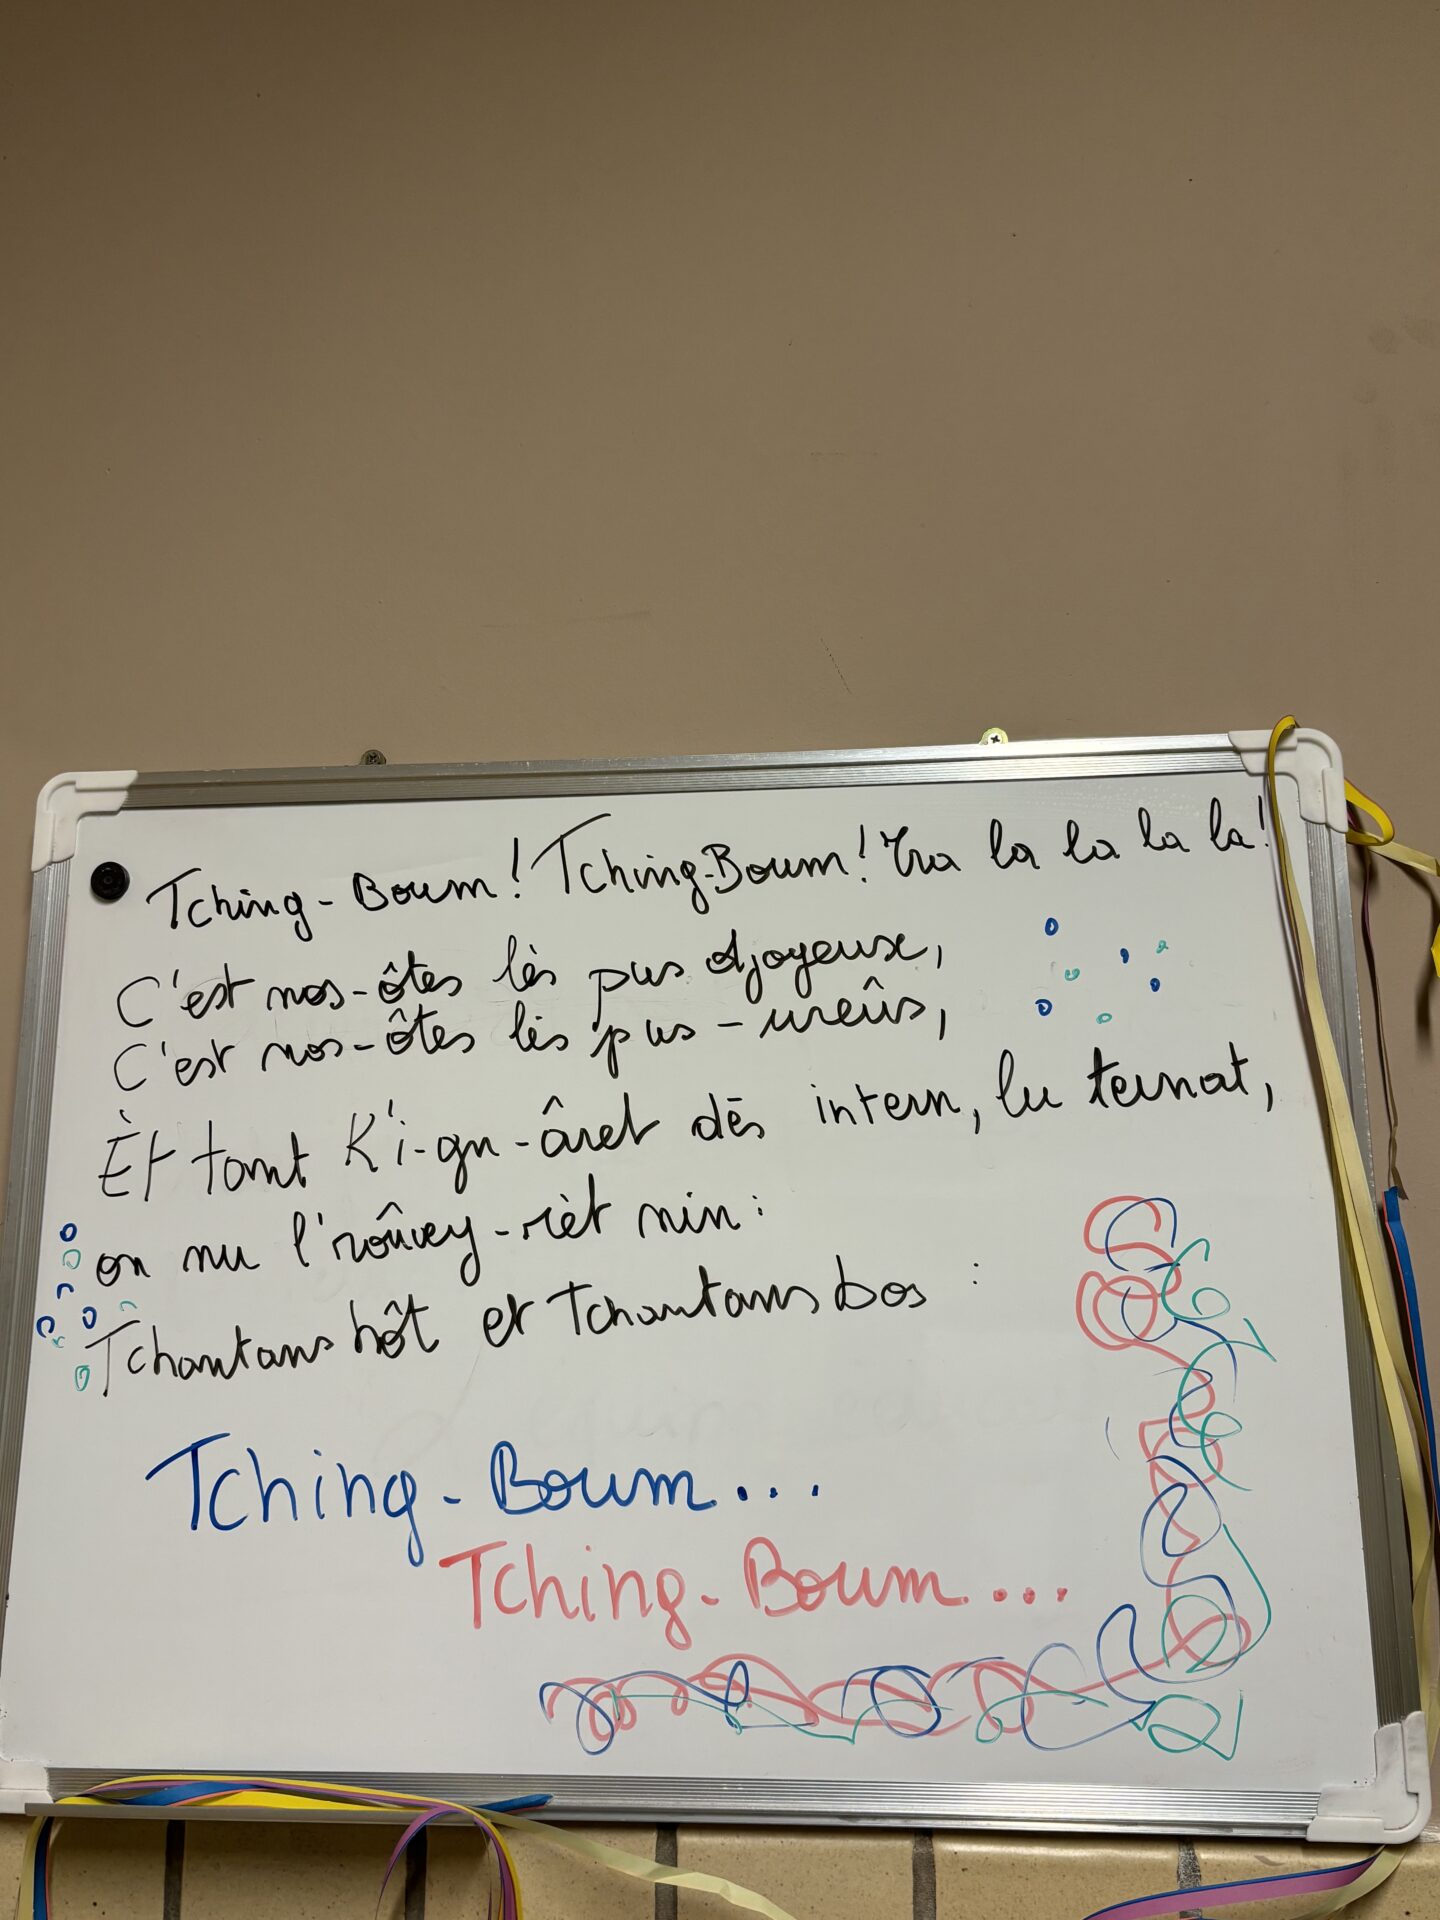 Tching-Boum! Tching-Boum! Tra la la la la!
C'est nos-ôtes lès pus djoyeux,
C'est nos-ôtes lès pus-ureûs,
Èt tant k'i-gn-âret dès intern, lu ternat,
on nu l'roûvey-rèt nin:
Tchantans hôt et Tchantans bas :
Tching-Boum...
Tching-Boum...